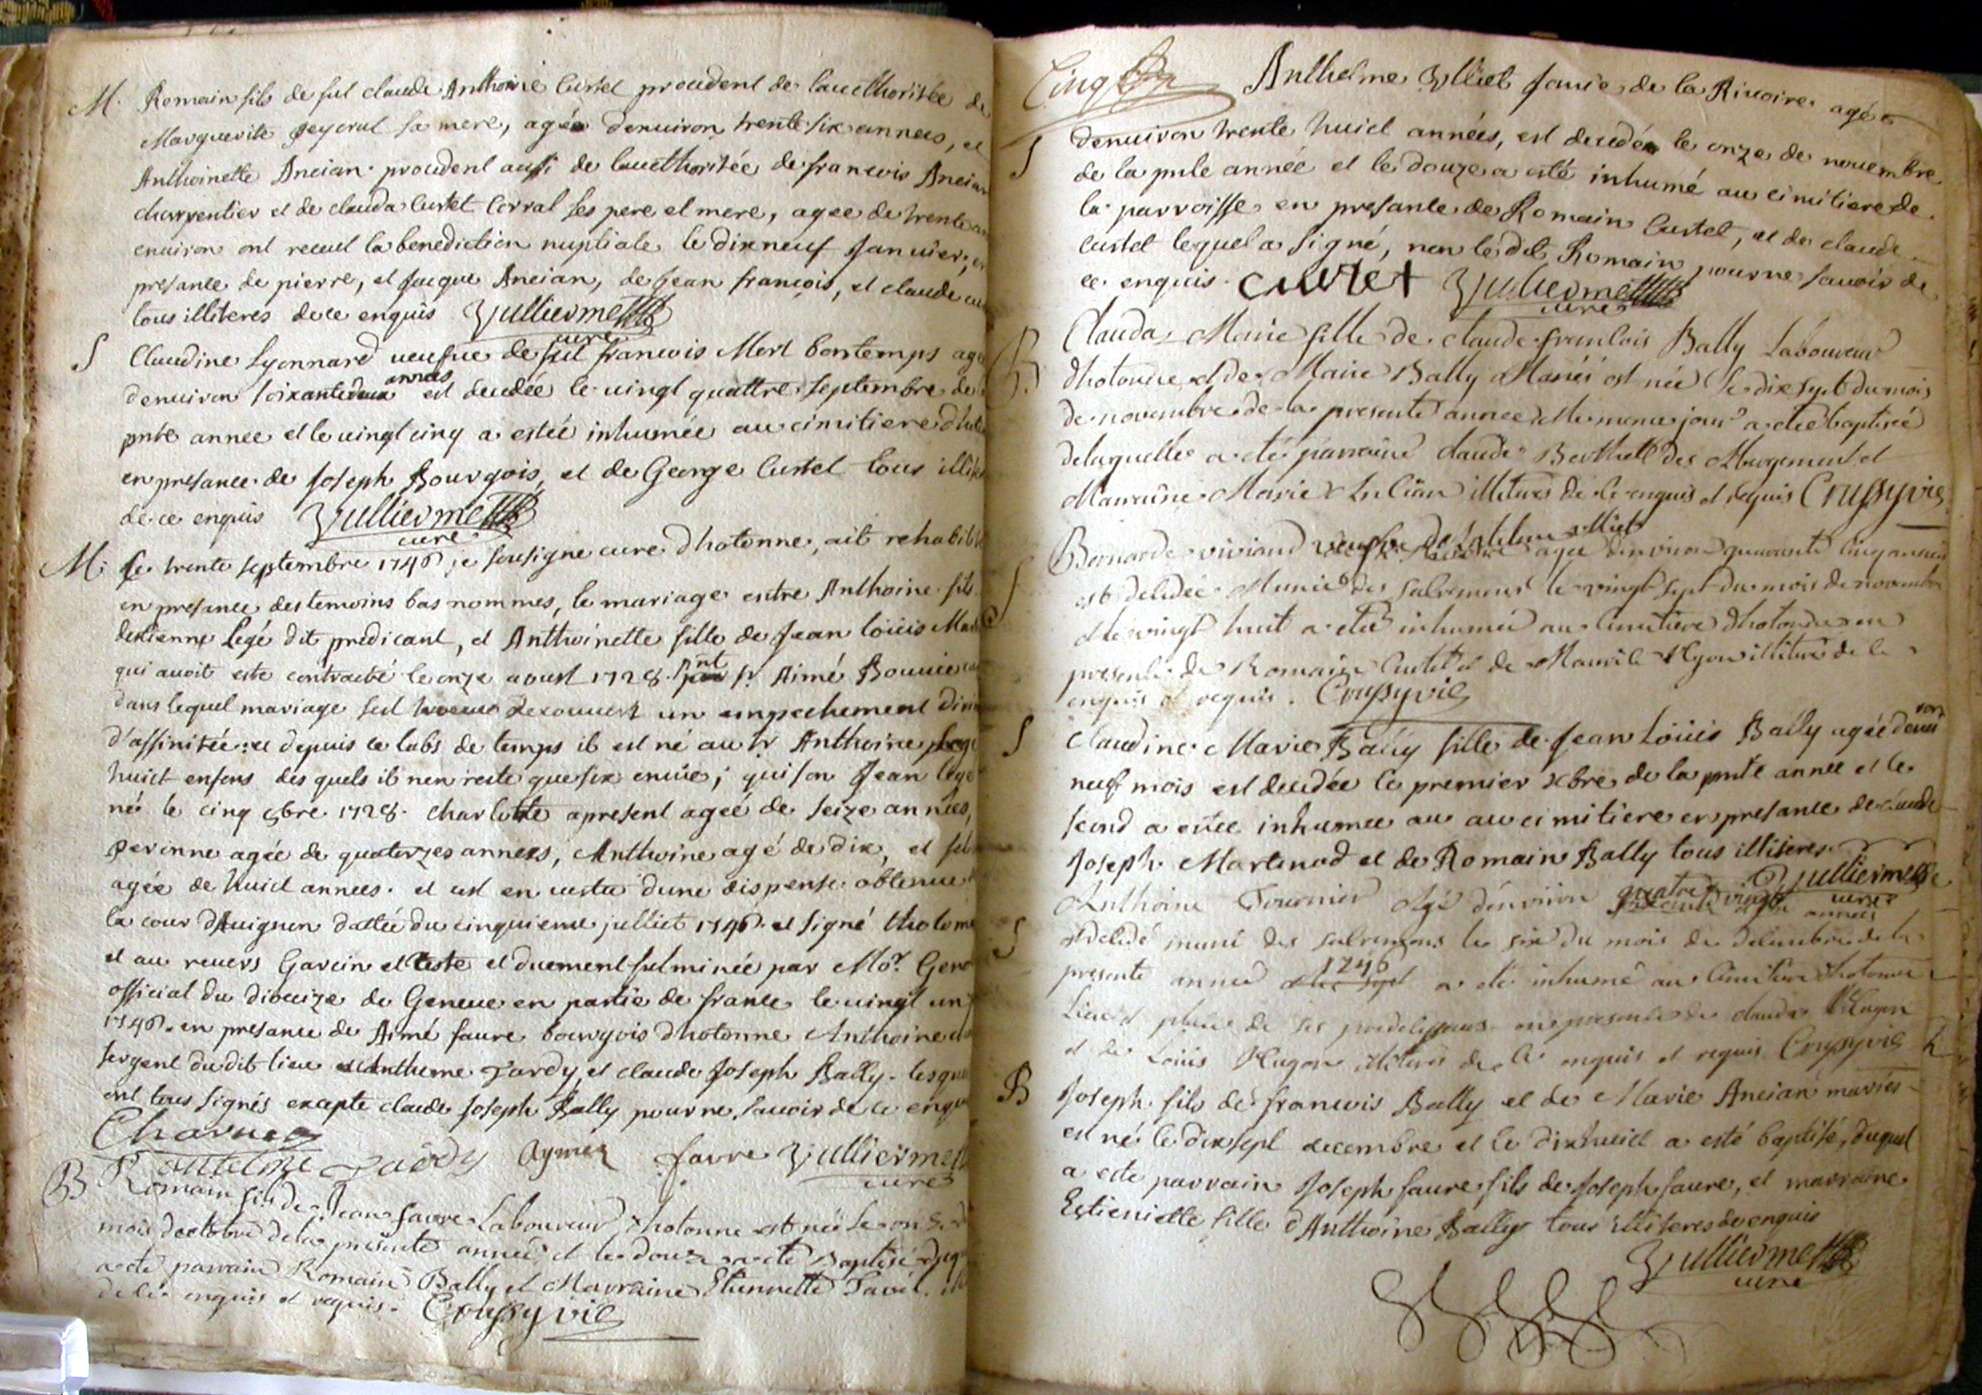 M. Romain fils de fut claude Anthoine Curtet procedent de laucthoritée de
Marguerite sa mere, agée denuiron trente six annees, et
Anthoinette Ancian procedent aussi de laucthoritée de francois Ancian
charpentier et de clauda Curtet Corral ses pere et mere, agée de trente
enuiron ont receut la benediction nuptiale le dixneuf Januier,
presante de pierre, et Jacque Ancian, de Jean francois, et claude
tous illiteres de ce enquis Vulliermet
curé
S Claudine Lyonnard ueufue de fut francois Mort bontemps
denuiron soixantedeux annees est decedée le uingt quattre septembre de
pnte annee et le uingt cinq a esteé inhumée au cimitiere
en presance de Joseph Bourgois, et de George Curtet tous
de ce enquis Vulliermet
curé
M. Le trente septembre 1746 je sousigne cure dhotonne, ait rehabilité
en presance des temoins bas nommes, le mariage entre Anthoine fils
destienne Legé dit predicant, et Anthoinette fille de Jean loüis
qui auoit este contracté le onze aoust 1728. Sr. Aimé Bouuier
dans lequel mariage sest decouuert un empechement
d'affinitée et depuis ce labs de temps il est né au Sr Anthoine
huict enfens des quels il nen reste que six enuie; qui son Jean legé
né le cinq 9bre 1728. Charlotte apresent ageé de seize annees,
perinne agée de quatorzes annees, Anthoine agé de dix, et
agée de huict annees. et cest en uertu dune dispense obtenue
la cour dAuignon dattée du cinquieme julliet 1746. et signé
et au reuers Garcin et duement fulminée par Mor.
official du dioceze de Geneue en partie de france le uingt un
1746. en presance de Aimé faure bourgois dhotonne Anthoine
sergent dudit lieu Anthme Tardy, et claude Joseph Bally. lesquels
ont tous signés excepte claude Joseph Bally pour ne sauoir de ce enquis
Charuet
antelme Tardy Aymez favre Vulliermet
curé
B Romain fils de Jean favre Laboureur dhotonne est née le onze
mois doctobre dela presente année et le douze a eté Baptisé
a eté parrain Romain Bally et Marraine Etiennette
de ce enquis et requis. Crussy vic
Cinq Anthelme Ulliet Janie de la Riuoire agée
S denuiron trente huict années, est decedée le onze de nouembre
de la pnte année et le douze a esté inhumé au cimitiere de
la parroisse en presante de Romain Curtet, et de claude
curtet lequel a signé, non le dit Romain pour ne sauoir de
ce enquis. curtet Vulliermet
curé
B Clauda Marie fille de claude francois Bally Laboureur
dhotonne et de Marie Bally Mariés est née le dix sept du mois
de novembre de la presente annee et le meme jour a etée baptisée
de laquelle a été parraine claude Berthet des Mergement et
Marraine Marie Ancian illitires de ce enquis et requis Crussy vic
S Bernarde viviand veufve de Antelme Ulliet agée denviron quarante cinq annees
est decedée Munie des Sacremens le vingt sept du mois de novembre
et le vingt huit a eté inhumée au cimitiere dhotonne en
presence de Romain Curtet et de Maurice Hugon illitires de ce
enquis et requis. Crussy vic
S Claudine Marie Bally fille de Jean Loüis Bally agée denuiron
neuf mois est decedée le premier xbre de la pnte annee et le
second a estée inhumée au au cimitiere en presance de claude
Joseph Martinod et de Romain Bally tous illiteres. Vulliermet
curé
S Anthoine Tournier Agé d'environ quatre vingt années
est decedé muni des sacremens le six du mois de decembre de la
presente annee 1746 a eté inhumé au Cimitiere dhotonne
Lieu et place de ses predecesseurs en presence de claude Hugon
et de Loüis Hugon illitires de ce enquis et requis Crussy vic
B Joseph fils de francois Bally et de Marie Ancian mariés
est né le dixsept decembre et le dixhuict a esté baptisé, duquel
a este parrain Joseph faure fils de Joseph faure, et marraine
Estieniette fille d'Anthoine Bally tous illiteres de enquis
Vulliermet
curé